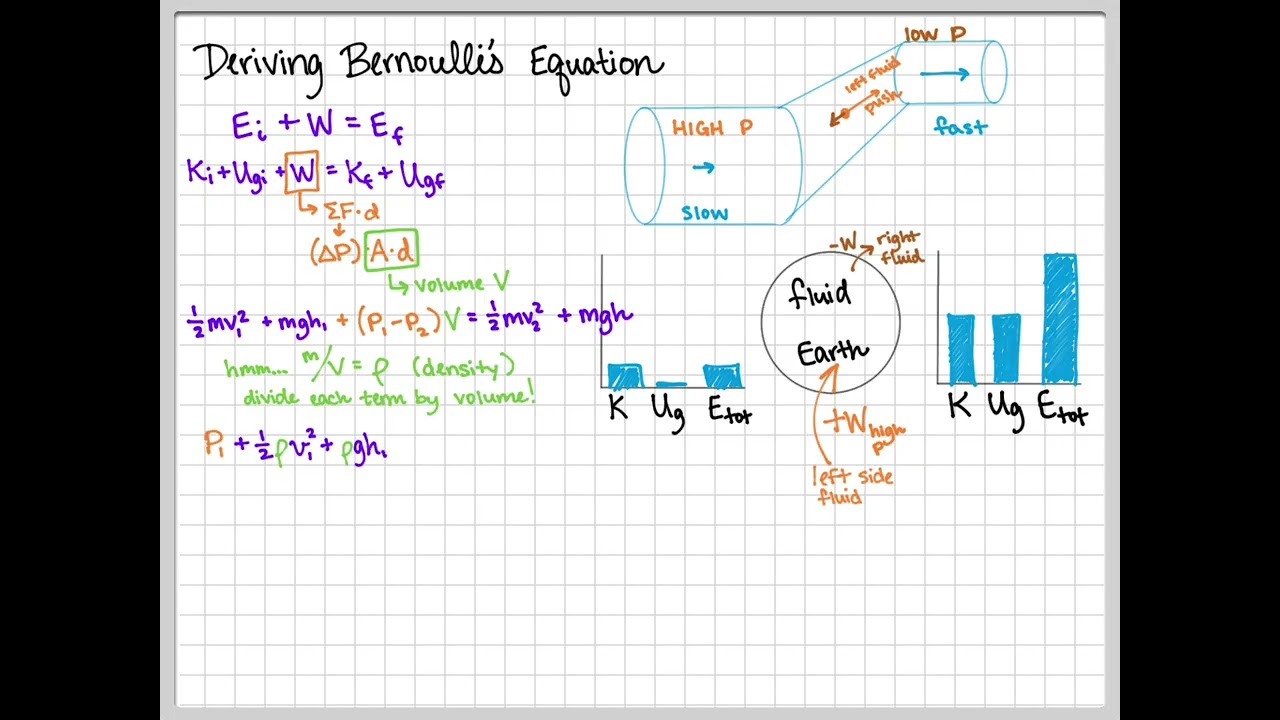 Deriving Bernoulli's Equation
Ei + W = Ef
Ki + Ugi + W = Kf + Ugf
↳ ΣF·d
↓
(ΔP) A·d
↳ volume V
½mv₁² + mgh₁ + (P₁-P₂)V = ½mv₂² + mgh
hmm... m/V = ρ (density)
divide each term by volume!
P₁ + ½ρv₁² + ρgh₁
low P
left fluid
push
HIGH P
fast
slow
-W → right
fluid
fluid
Earth
K Ug Etot
+W high P
left side
fluid
K Ug Etot